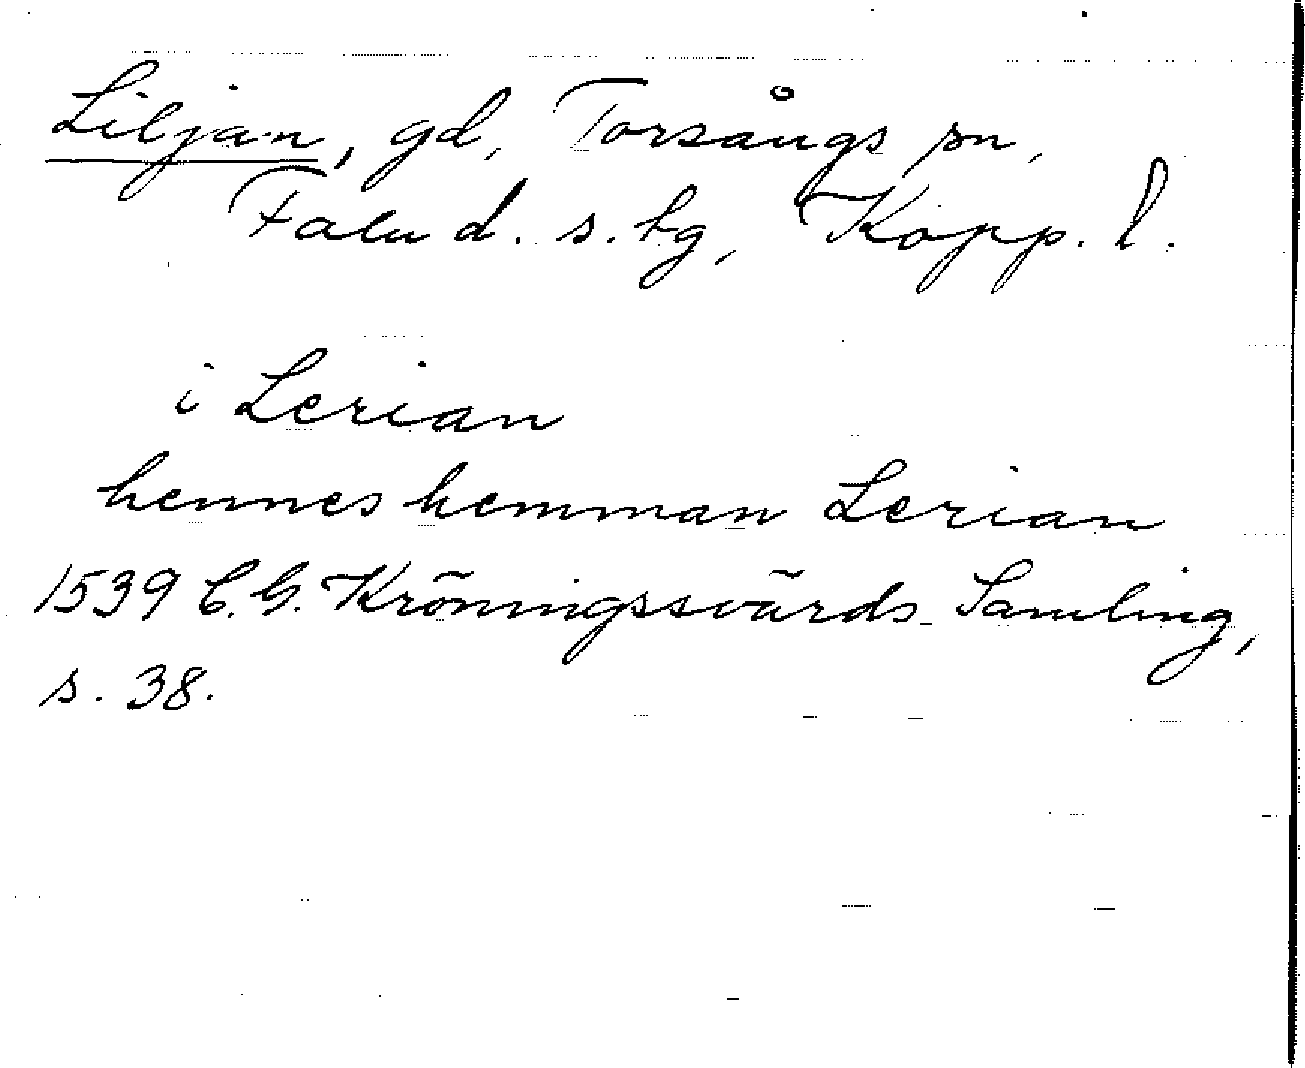 Liljan, gd, Torsångs sn,
Falu d. s. hg, Kopp. l.
i Lerian
hennes hemman Lerian
1539 C.G. Kröningssvärds Samling,
s. 38.